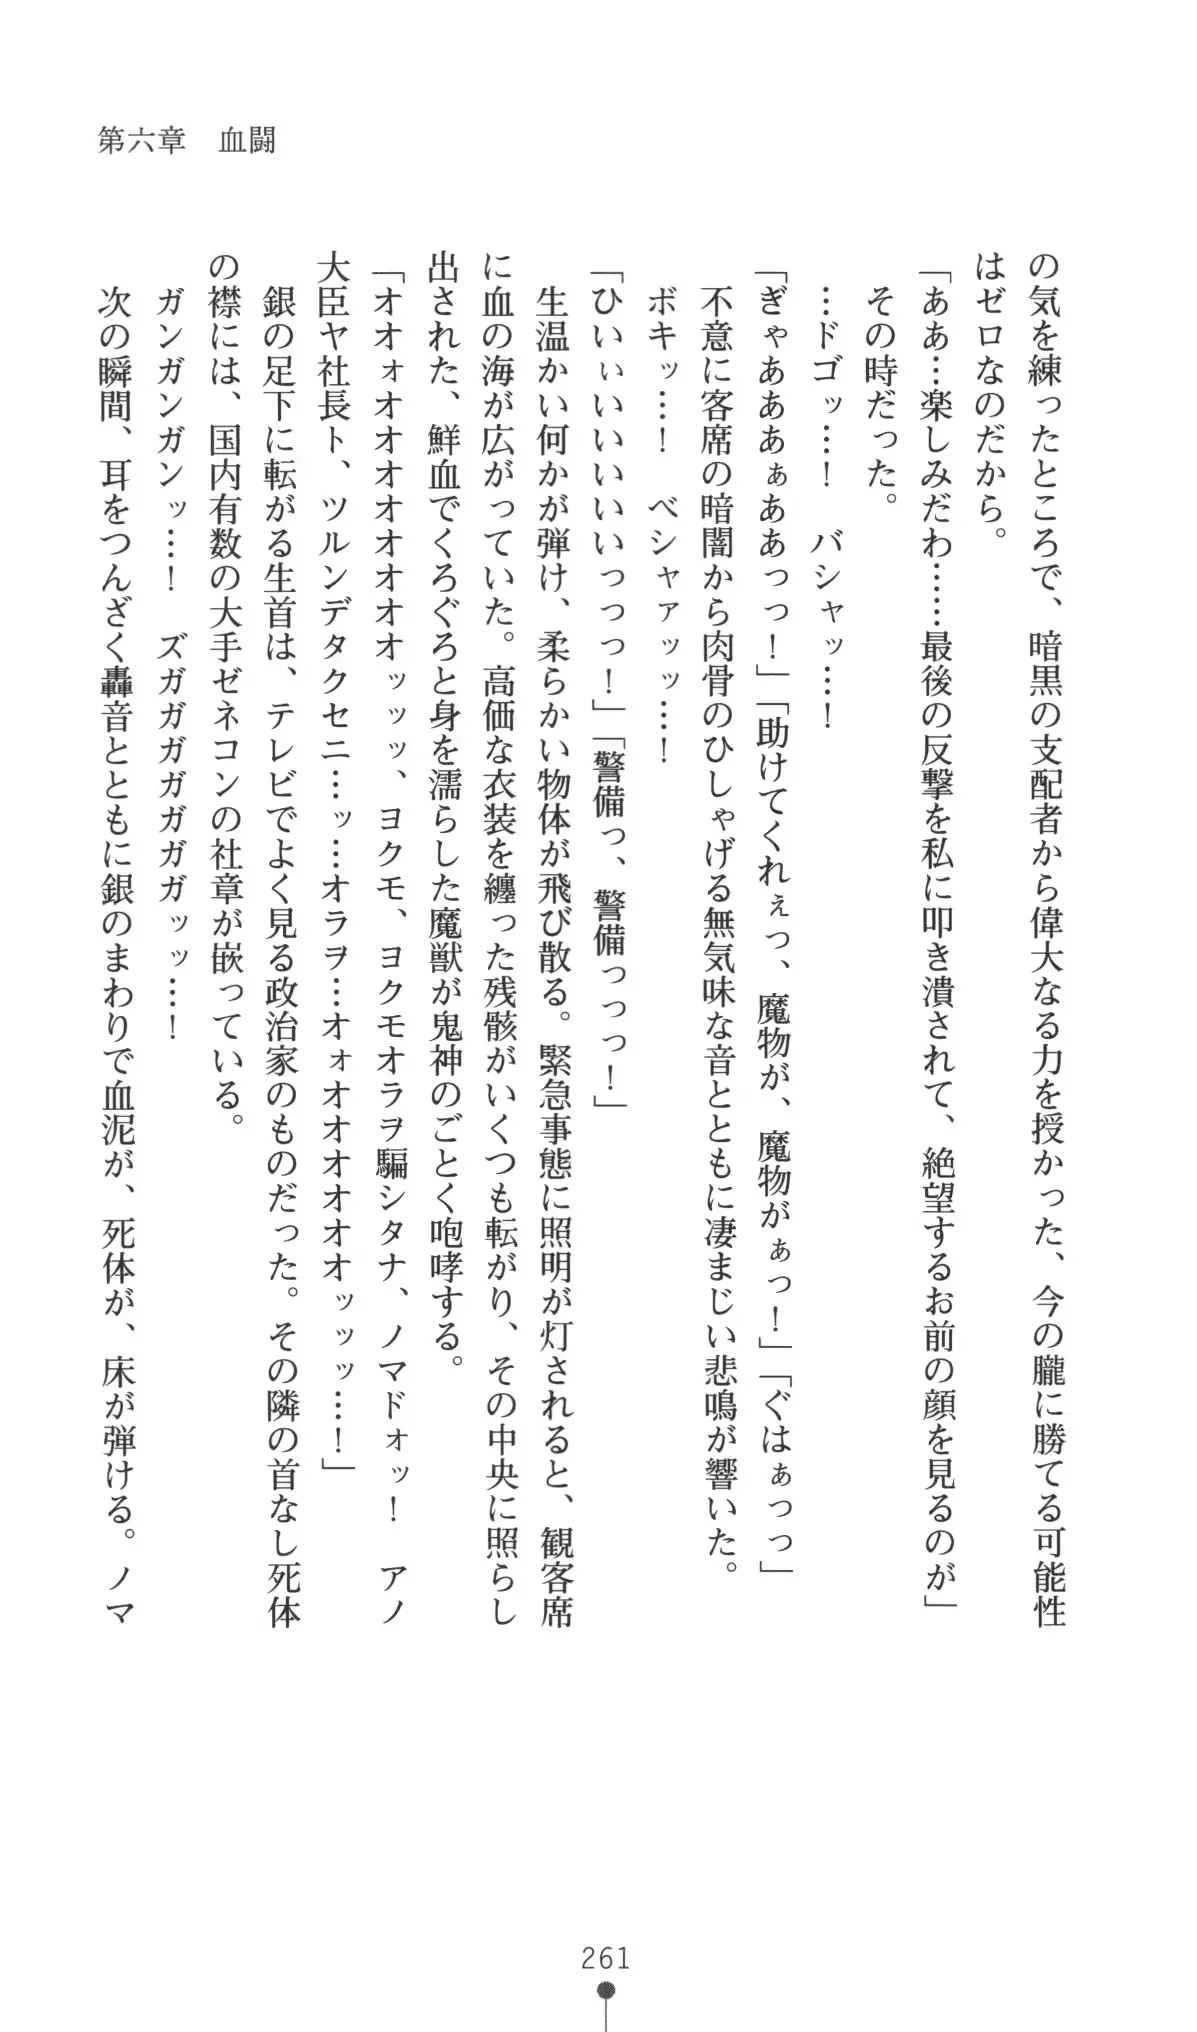 第六章　血闘
の気を練ったところで、暗黒の支配者から偉大なる力を授かった、今の朧に勝てる可能性
はゼロなのだから。
「ああ…楽しみだわ……最後の反撃を私に叩き潰されて、絶望するお前の顔を見るのが」
　その時だった。
　…ドゴッ…！　バシャッ…！
「ぎゃあああぁああっっ！」「助けてくれぇっ、魔物が、魔物がぁっ！」「ぐはぁっっ」
　不意に客席の暗闇から肉骨のひしゃげる無気味な音とともに凄まじい悲鳴が響いた。
　ボキッ…！　ベシャァッッ…！
「ひいぃいいいいいっっっ！」「警備っ、警備っっっ！」
　生温かい何かが弾け、柔らかい物体が飛び散る。緊急事態に照明が灯されると、観客席
に血の海が広がっていた。高価な衣装を纏った残骸がいくつも転がり、その中央に照らし
出された、鮮血でくろぐろと身を濡らした魔獣が鬼神のごとく咆哮する。
「オオォオオオオオオオオッッッ、ヨクモ、ヨクモオラヲ騙シタナ、ノマドォッ！　アノ
大臣ヤ社長ト、ツルンデタクセニ…ッ…オラヲ…オォオオオオオオッッッ…！」
　銀の足下に転がる生首は、テレビでよく見る政治家のものだった。その隣の首なし死体
の襟には、国内有数の大手ゼネコンの社章が嵌っている。
　ガンガンガンッ…！　ズガガガガガガガッッ…！
　次の瞬間、耳をつんざく轟音とともに銀のまわりで血泥が、死体が、床が弾ける。ノマ
261